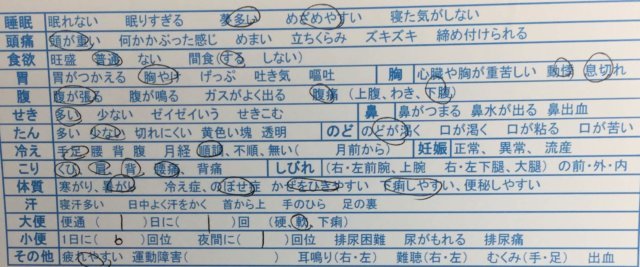 睡眠 眠れない 眠りすぎる 夢多い めざめやすい 寝た気がしない
頭痛 頭が重い 何かかぶった感じ めまい 立ちくらみ ズキズキ 締め付けられる
食欲 旺盛 普通 ない 間食(する しない)
胃 胃がつかえる 胸やけ げっぷ 吐き気 嘔吐 胸 心臓や胸が重苦しい 動悸 息切れ
腹 腹が張る 腹が鳴る ガスがよく出る 腹痛(上腹、わき、下腹)
せき 多い 少ない ゼイゼイいう せきこむ 鼻 鼻がつまる 鼻水が出る 鼻出血
たん 多い 少ない 切れにくい 黄色い塊 透明 のど のどが渇く 口が渇く 口が粘る 口が苦い
冷え 手足 腰 背 腹 月経 順調、不順、無い( 月前から) 妊娠 正常、異常、流産
こり くび 肩 背 腰痛、背痛 しびれ (右・左前腕、上腕 右・左下腿、大腿)の前・外・内
体質 寒がり、暑がり 冷え症、のぼせ症 かぜをひきやすい 下痢しやすい、便秘しやすい
汗 寝汗多い 日中よく汗をかく 首から上 手のひら 足の裏
大便 便通( 1 )日に( 1 )回(硬、軟、下痢)
小便 1日に( 6 )回位 夜間に( 1 )回位 排尿困難 尿がもれる 排尿痛
その他 疲れやすい 運動障害( ) 耳鳴り(右・左) 難聴(右・左) むくみ(手・足) 出血